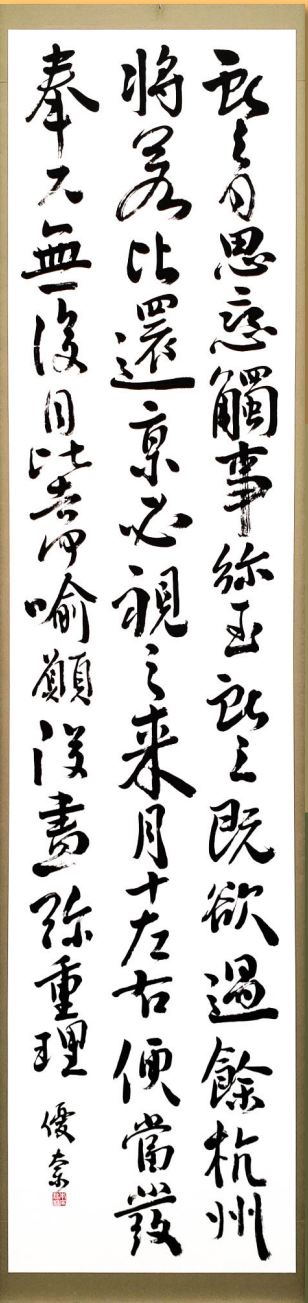 獻之白思戀觸事弥至獻之既欲過餘杭州
將若比還京必視之来月十左右便當發
奉見無復日此告何喻願復盡珍重理
優奈